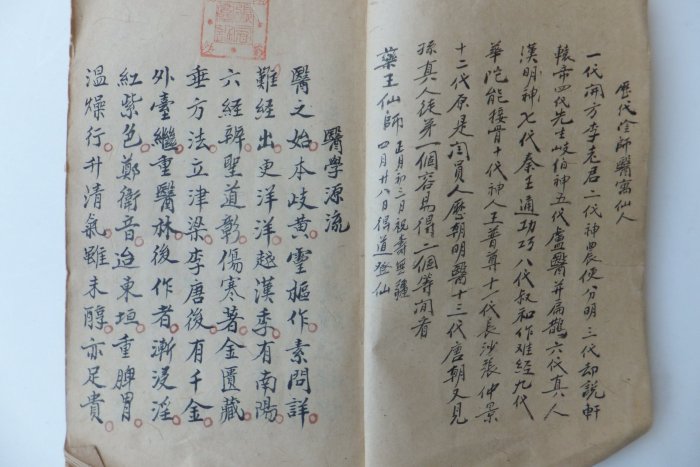 歷代師醫寓仙人
一代開方李老君二代神農使分明三代却說軒
轅帝四代先生岐伯神五代盧醫并扁鵲六代真人
漢明神七代秦王通功巧八代叔和作难經九代
華陀能接骨十代神人王普尊十一代長沙張仲景
十二代原是員人歷朝明醫十三代唐朝又見
孫真人徒弟一個容易得二個等閒看
藥王仙師
正月初三日祝壽無疆
四月廿八日得道登仙
醫學源流
醫之始。本歧黃。靈樞作。素問詳。
難經出。更洋洋。越漢季。有南陽。
六經辨。聖道彰。傷寒著。金匱藏。
垂方法。立津梁。李唐後。有千金。
外臺繼。重醫林。後作者。漸浸淫。
紅紫色。鄭衛音。迨東垣。重脾胃。
溫燥行。升清氣。雖未醇。亦足貴。